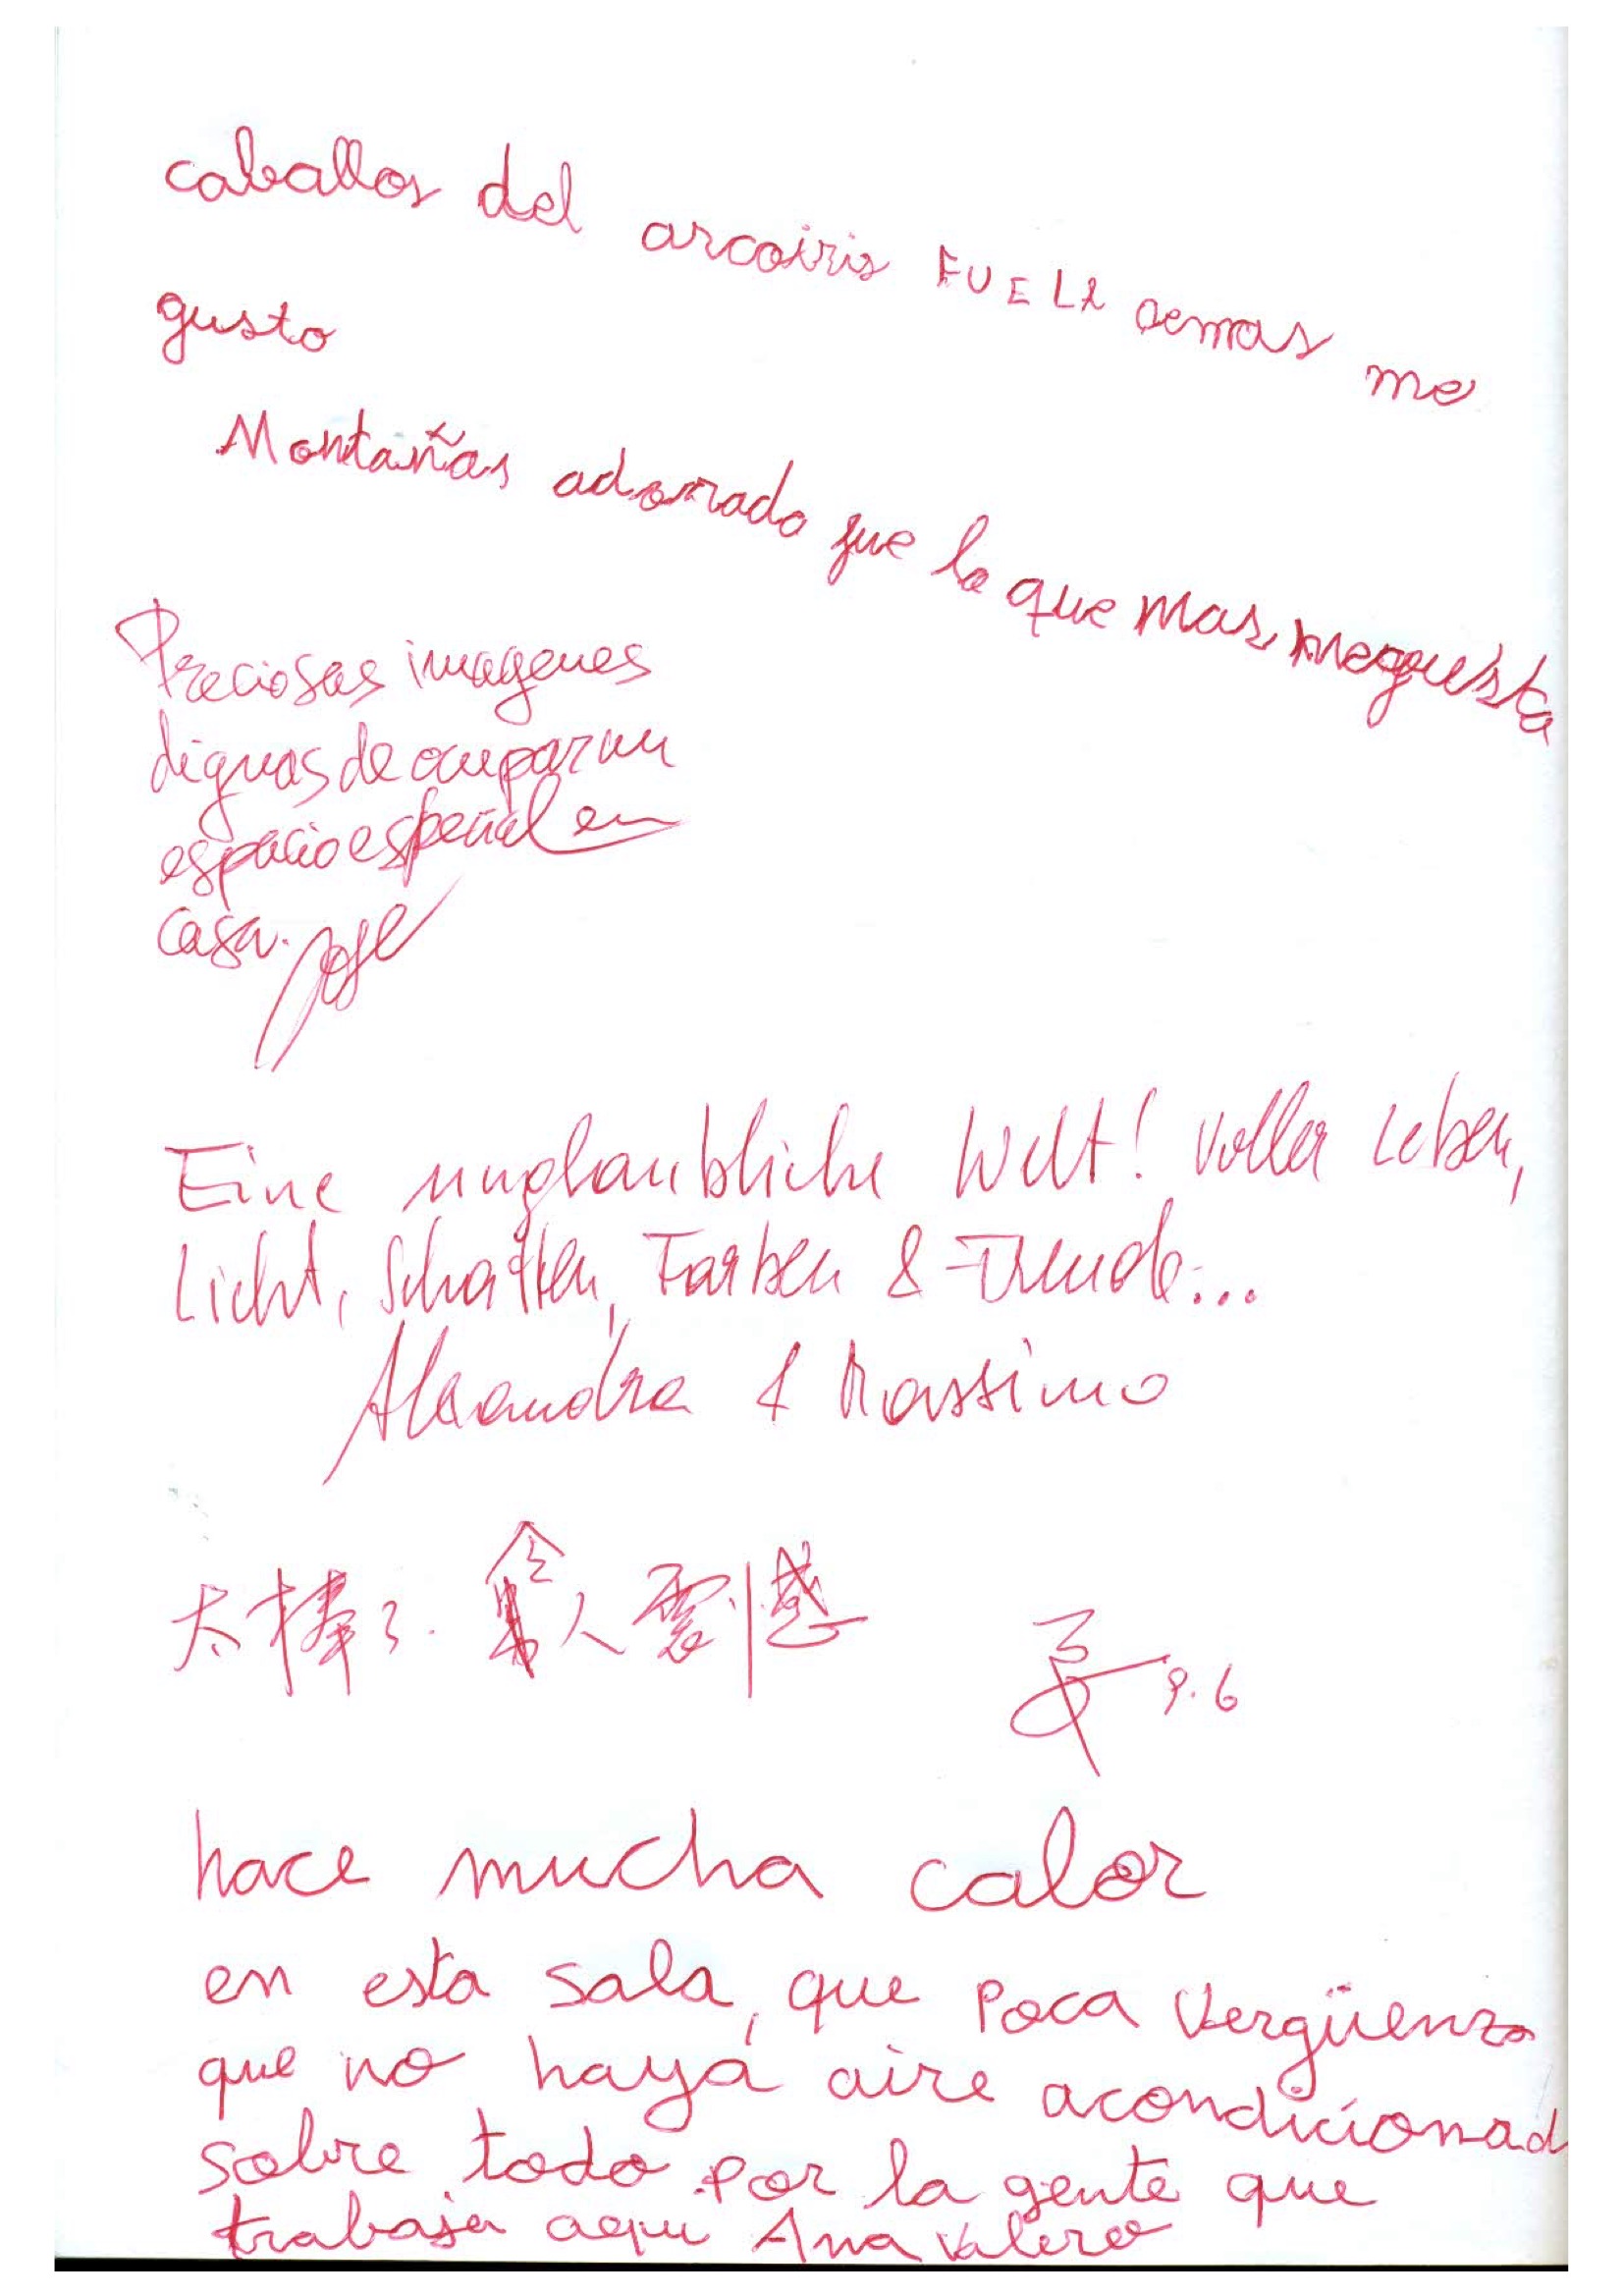 caballos del arcoiris FUE LA demas me
gusto
Montañas adornado fue lo que mas me gusta
Preciosas imagenes
dignas de ocupar un
espacio especial en
casa. Jose
Eine unglaubliche Welt! Voller Leben,
Licht, Schatten, Farben & Freude...
Alexandra & Massimo
太棒了. 令人震感
9.6
hace mucha calor
en esta sala, que poca vergüenza
que no haya aire acondicionad
sobre todo por la gente que
trabaja aqui Ana Valero